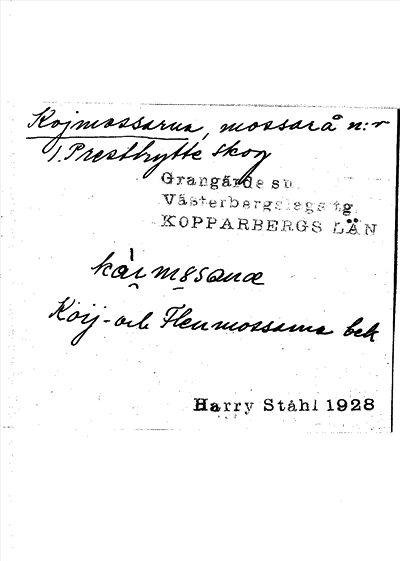 Kojmossarna, mossar å n:r
1 Prestbytte skog
Grangärde sn.
Västerbergslags tg.
KOPPARBERGS LÄN
Kojj- och Flenmossarna bek
Harry Ståhl 1928